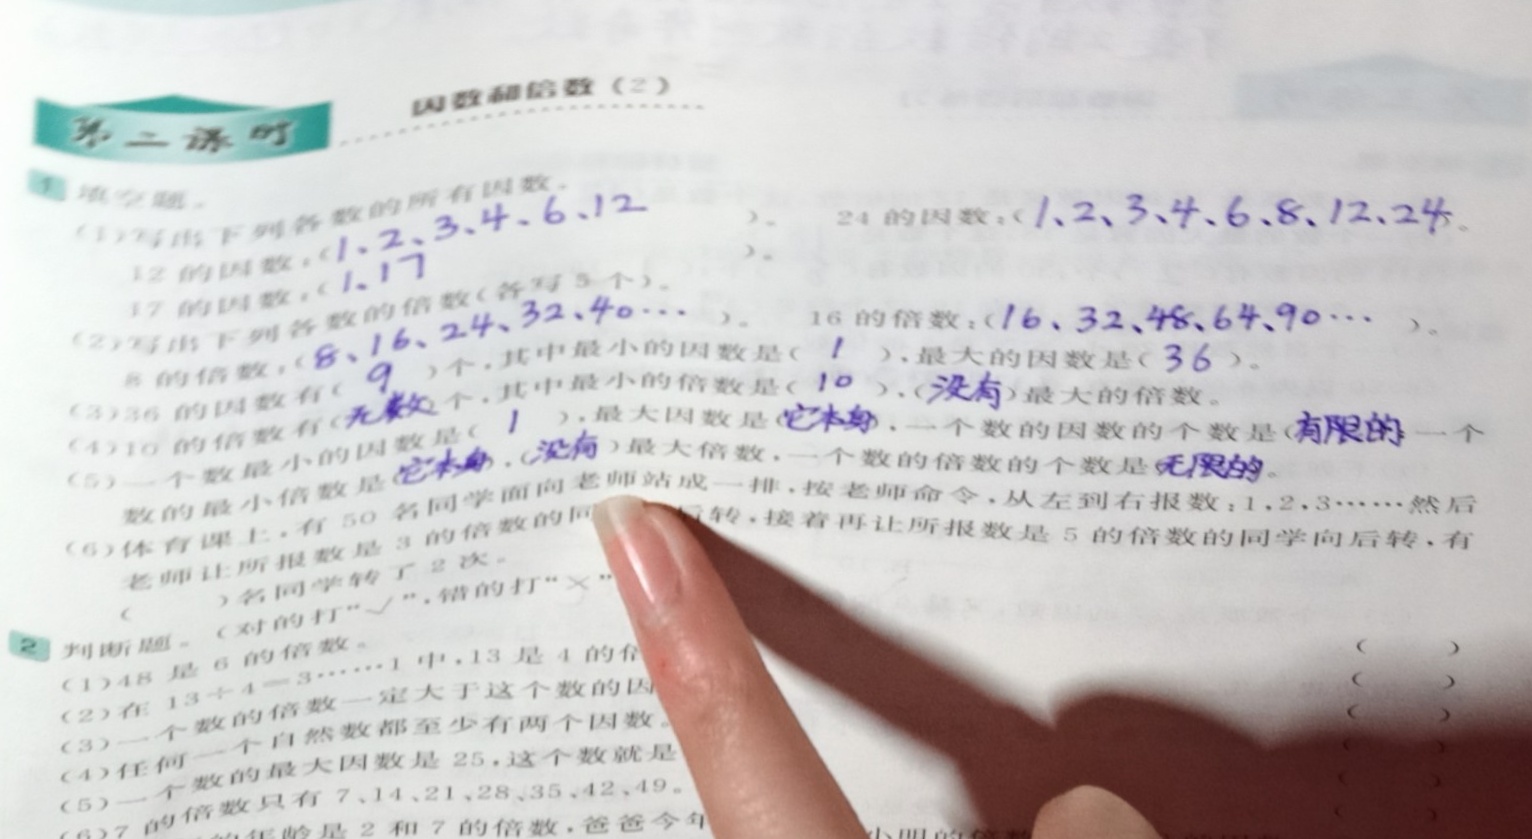 因数和倍数(2)
第二课时
1 填空题。
(1)写出下列各数的所有因数。
12 的因数:(1、2、3、4、6、12)。 24 的因数:(1、2、3、4、6、8、12、24)。
17 的因数:(1、17)。
(2)写出下列各数的倍数(各写 5 个)。
8 的倍数:(8、16、24、32、40…)。 16 的倍数:(16、32、48、64、90…)。
(3)36 的因数有(9)个,其中最小的因数是(1),最大的因数是(36)。
(4)10 的倍数有(无数)个,其中最小的倍数是(10),(没有)最大的倍数。
(5)一个数最小的因数是(1),最大因数是(它本身),一个数的因数的个数是(有限的),一个
数的最小倍数是(它本身),(没有)最大倍数,一个数的倍数的个数是(无限的)。
(6)体育课上,有 50 名同学面向老师站成一排,按老师命令,从左到右报数:1,2,3……然后
老师让所报数是 3 的倍数的同 后转,接着再让所报数是 5 的倍数的同学向后转,有
( )名同学转了 2 次。
2 判断题。(对的打“√”,错的打“×”
(1)48 是 6 的倍数。 ( )
(2)在 13÷4=3……1 中,13 是 4 的倍 ( )
(3)一个数的倍数一定大于这个数的因 ( )
(4)任何一个自然数都至少有两个因数。 ( )
(5)一个数的最大因数是 25,这个数就是 ( )
(6)7 的倍数只有 7、14、21、28、35、42、49。 ( )
的年龄是 2 和 7 的倍数,爸爸今年